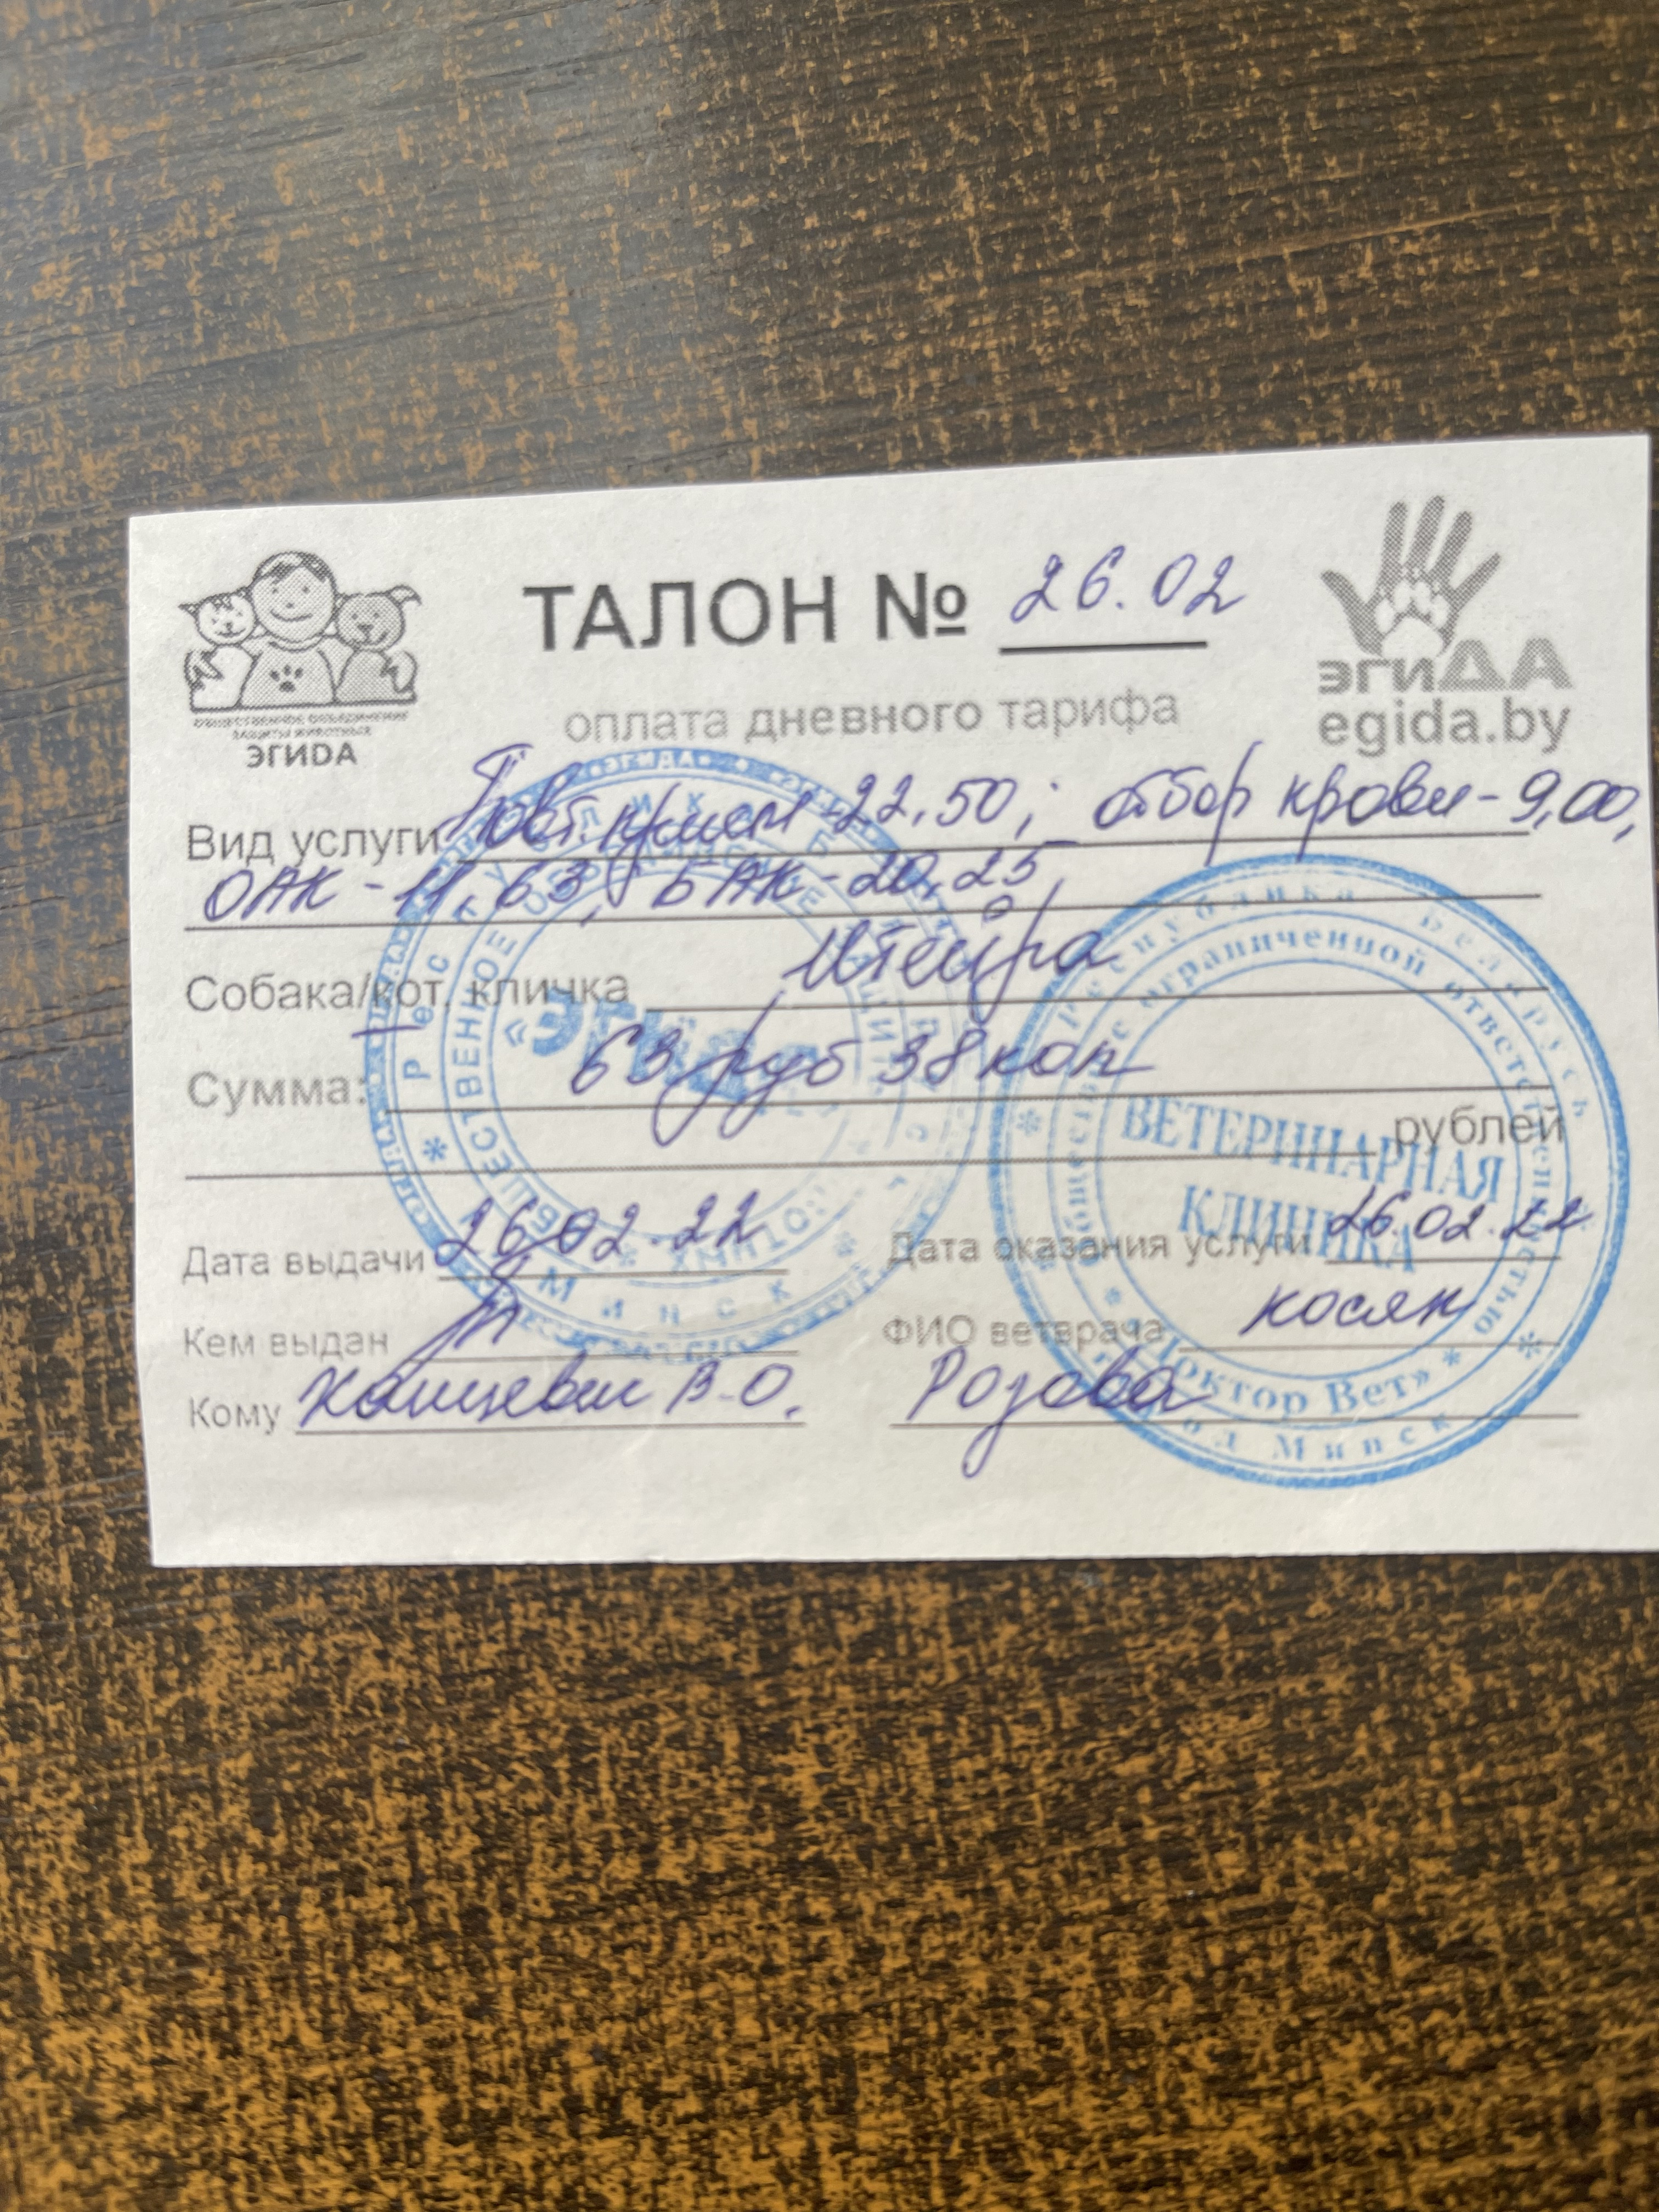 ТАЛОН № 26.02
оплата дневного тарифа
ОБЩЕСТВЕННОЕ ОБЪЕДИНЕНИЕ
ЗАЩИТЫ ЖИВОТНЫХ
ЭГИДА
ЭГИДА
egida.by
Вид услуги Повт. прием - 22,50; отбор крови - 9,00,
ОАК - 11,63, БАК - 20,25
Собака/кот. кличка Штейра
Сумма: 63 руб 38 коп
рублей
Дата выдачи 26.02.22 Дата оказания услуги 26.02.22
Кем выдан ФИО ветврача косян
Кому В.О. Розова
«Эгида»
Минск
Республика Беларусь
общество с ограниченной ответственностью
ВЕТЕРИНАРНАЯ
КЛИНИКА
«Доктор Вет»
город Минск